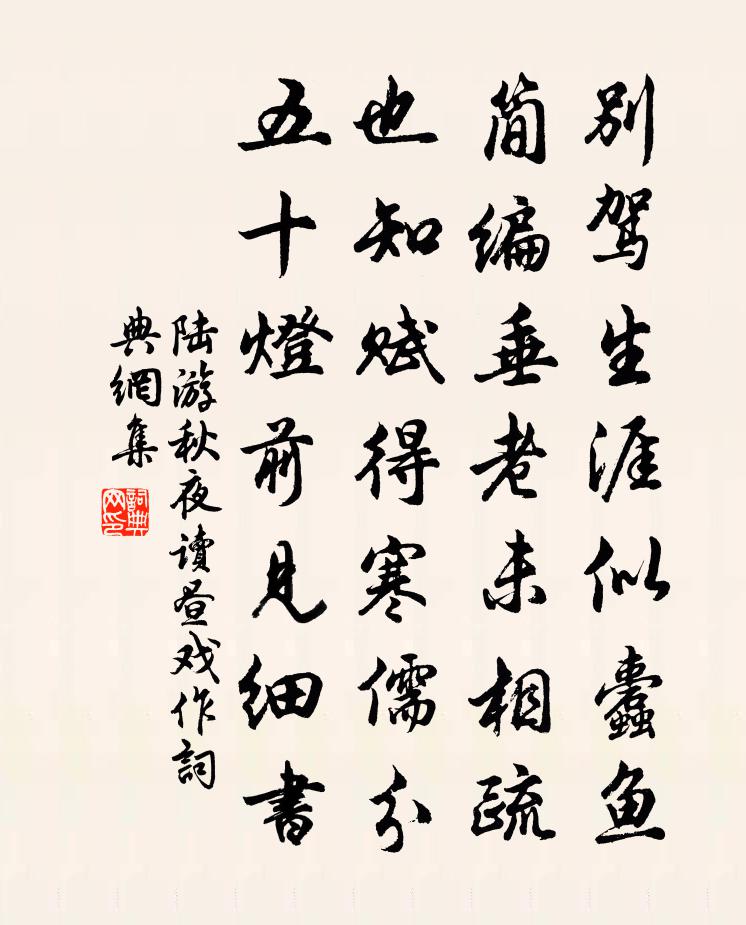 别驾生涯似蠹鱼
简编垂老未相疏
也知赋得寒儒分
五十燈前见细書
陆游秋夜讀昼戏作詞
典網集
詞典
网印